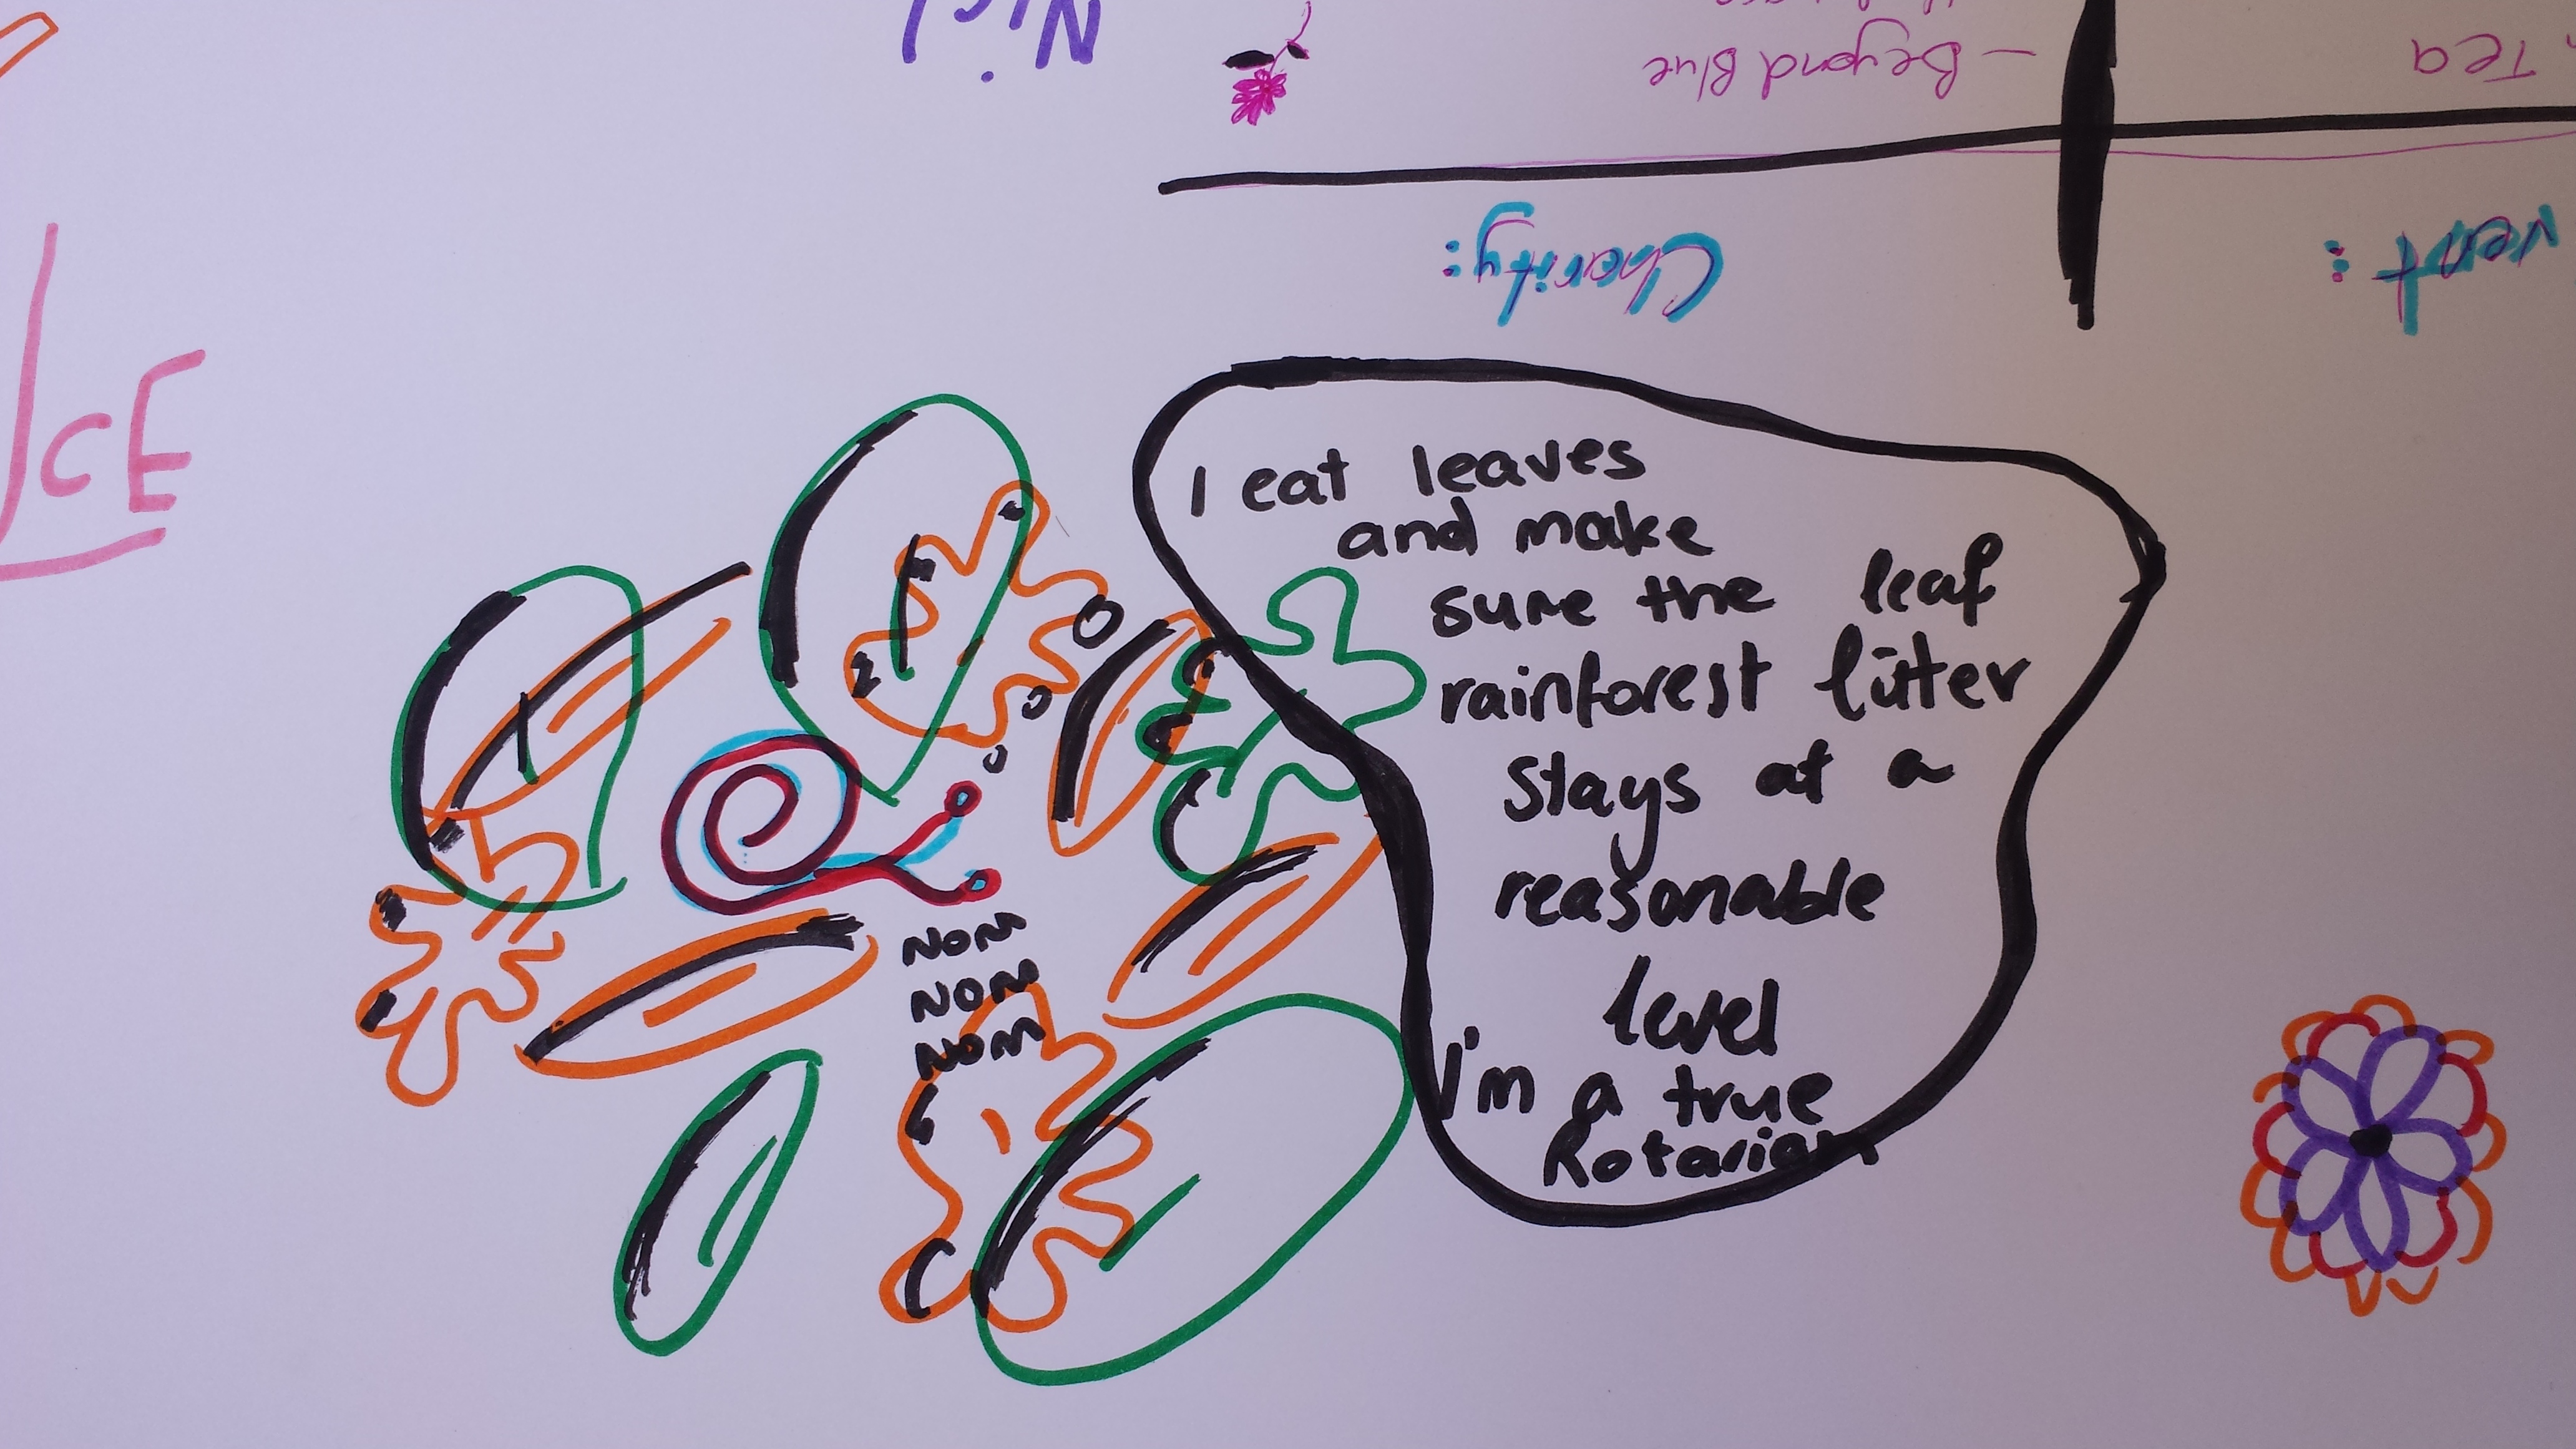 Tea
- Beyond Blue
Charity:
ICE
I eat leaves
and make
sure the leaf
rainforest litter
stays at a
reasonable
level
I'm a true
Rotarian
NOM
NOM
NOM